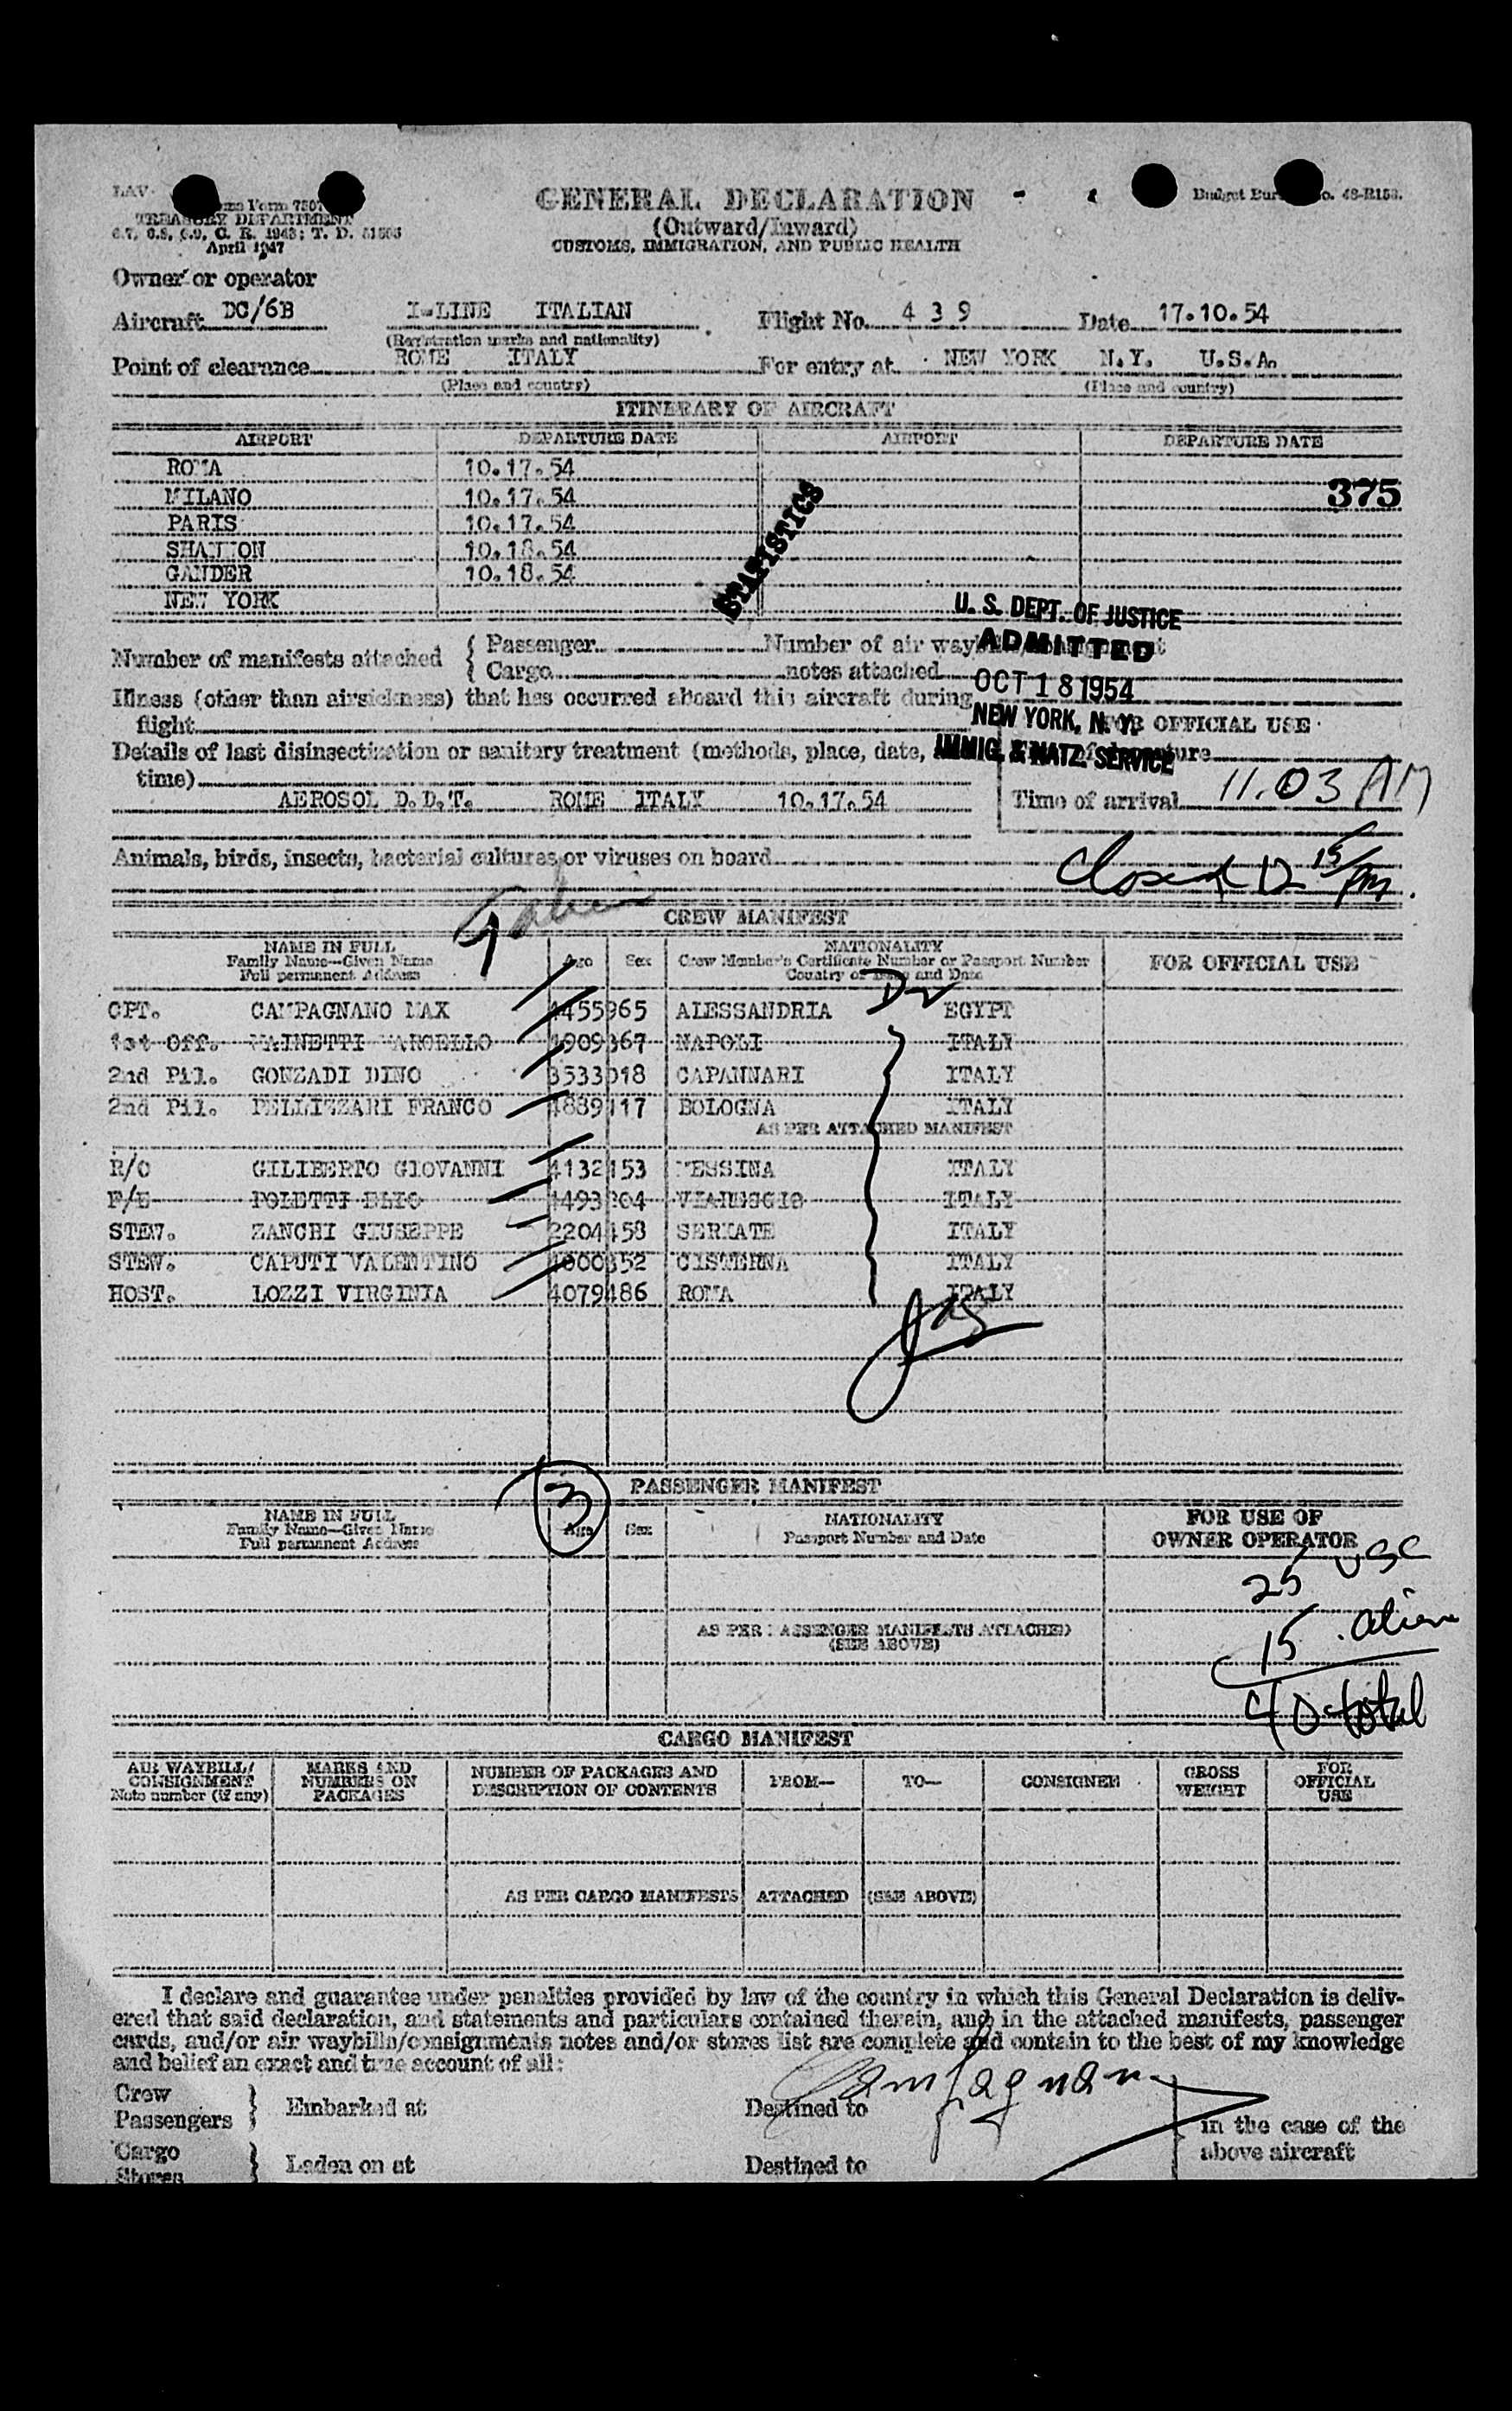 LAV
TREASURY DEPARTMENT
April 1947
GENERAL DECLARATION
(Outward/Inward)
CUSTOMS, IMMIGRATION, AND PUBLIC HEALTH
Owner or operator
Aircraft DC/6B I-LINE ITALIAN Flight No. 439 Date 17.10.54
(Registration marks and nationality)
Point of clearance ROME ITALY For entry at NEW YORK N.Y. U.S.A.
(Place and country) (Place and country)
ITINERARY OF AIRCRAFT
AIRPORT DEPARTURE DATE AIRPORT DEPARTURE DATE
ROMA 10.17.54
MILANO 10.17.54 375
PARIS 10.17.54
SHANNON 10.18.54
GANDER 10.18.54
NEW YORK
STATISTICS
U. S. DEPT. OF JUSTICE
ADMITTED
OCT 18 1954
NEW YORK, N. Y.
IMMIG. & NATZ. SERVICE
Number of manifests attached { Passenger Number of air
Cargo notes attached
Illness (other than airsickness) that has occurred aboard this aircraft during
flight FOR OFFICIAL USE
Details of last disinsectization or sanitary treatment (methods, place, date,
time)
AEROSOL D.D.T. ROME ITALY 10.17.54 Time of arrival 11.03 AM
Animals, birds, insects, bacterial cultures, or viruses on board
Closed 12 15/pm.
CREW MANIFEST
NAME IN FULL
Family Name—Given Name
Full permanent Address
Age Sex
NATIONALITY
Crew Member's Certificate Number or Passport Number
Country of Issue and Date
FOR OFFICIAL USE
CPT. CAMPAGNANO MAX 4455965 ALESSANDRIA EGYPT
1st Off. MAINETTI MARCELLO 367 NAPOLI ITALY
2nd Pil. GONZADI DINO 3533018 CAPANNARI ITALY
2nd Pil. PELLIZZARI FRANCO 117 BOLOGNA ITALY
AS PER ATTACHED MANIFEST
R/O GILIBERTO GIOVANNI 4132153 MESSINA ITALY
F/E POLETTI ELIO VIAREGGIO ITALY
STEW. ZANCHI GIUSEPPE 2204458 SERIATE ITALY
STEW. CAPUTI VALENTINO 352 CISTERNA ITALY
HOST. LOZZI VIRGINIA 4079486 ROMA ITALY
3
PASSENGER MANIFEST
NAME IN FULL
Family Name—Given Name
Full permanent Address
Age Sex
NATIONALITY
Passport Number and Date
FOR USE OF
OWNER OPERATOR
25 USC
15 alien
40 total
AS PER PASSENGER MANIFESTS ATTACHED
(SEE ABOVE)
CARGO MANIFEST
AIR WAYBILL/
CONSIGNMENT
Note number (if any)
MARKS AND
NUMBERS ON
PACKAGES
NUMBER OF PACKAGES AND
DESCRIPTION OF CONTENTS
FROM—
TO—
CONSIGNEE
GROSS
WEIGHT
FOR
OFFICIAL
USE
AS PER CARGO MANIFESTS ATTACHED (SEE ABOVE)
I declare and guarantee under penalties provided by law of the country in which this General Declaration is deliv-
ered that said declaration, and statements and particulars contained therein, and in the attached manifests, passenger
cards, and/or air waybills/consignments notes and/or stores list are complete and contain to the best of my knowledge
and belief an exact and true account of all:
Crew
Passengers } Embarked at Destined to
in the case of the
above aircraft
Cargo
Stores } Laden on at Destined to